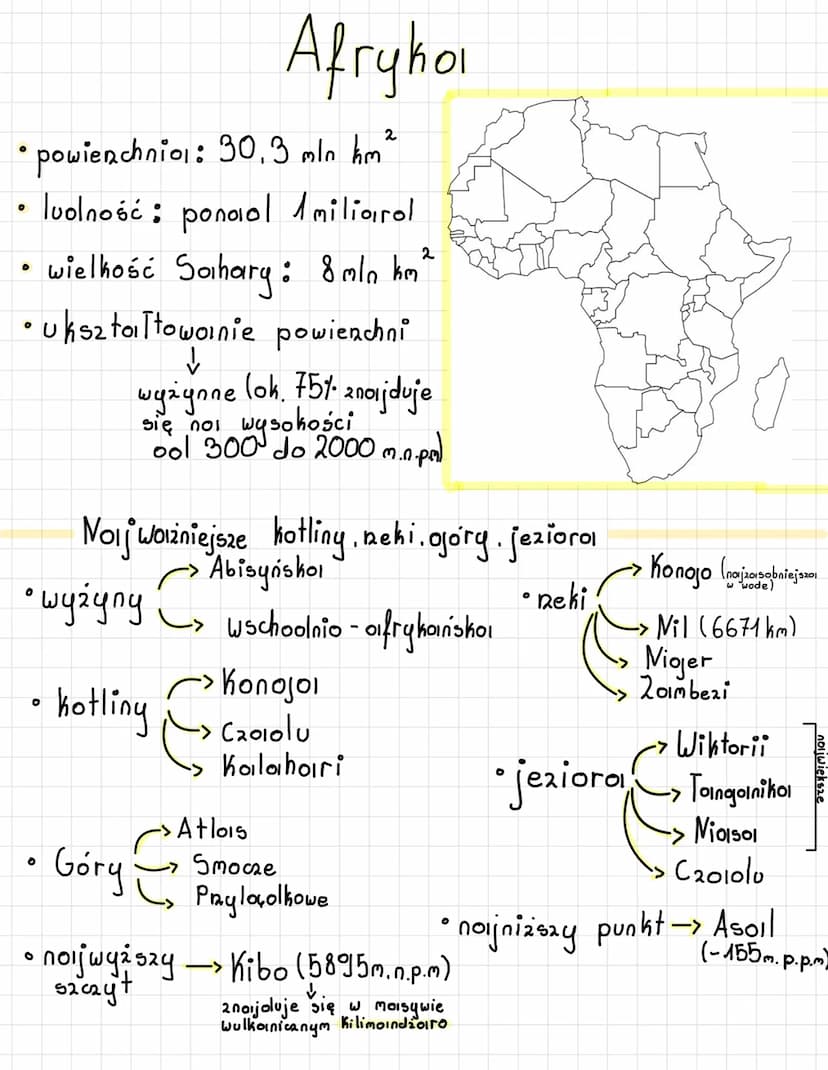 Afryka
• powierzchnia: 30,3 mln km²
• ludność: ponad 1 miliard
• wielkość Sahary: 8 mln km²
• ukształtowanie powierzchni
↓
wyżynne (ok. 75% znajduje
się na wysokości
od 300 do 2000 m.n.pm)
Najważniejsze kotliny, rzeki, góry, jeziora
• wyżyny → Abisyńska
→ wschodnio-afrykańska
• kotliny → Konga
→ Czadu
→ Kalahari
• Góry → Atlas
→ Smocze
→ Przylądkowe
• najwyższy szczyt → Kibo (5895m.n.p.m)
↓
znajduje się w masywie
wulkanicznym Kilimandżaro
• rzeki → Kongo (najzasobniejsza
w wodę)
→ Nil (6671km)
→ Niger
→ Zambezi
• jeziora → Wiktorii
→ Tanganika
→ Niasa
→ Czadu
największe
• najniższy punkt → Asal
(-155m.p.p.m)